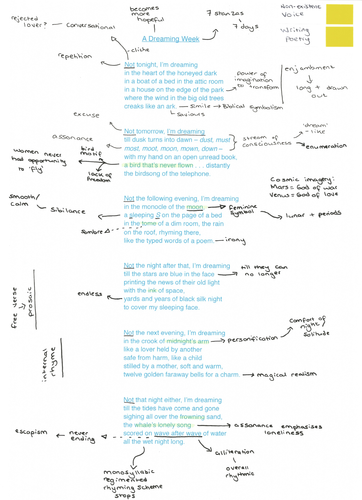 rejected lover?
Conversational
becomes more hopeful
7 stanzas
7 days
Non-extreme
Voice
Writing
Poetry
A Dreaming Week
cliche
repetition
Not tonight, I'm dreaming
in the heart of the honeyed dark
in a boat of a bed in the attic room
in a house on the edge of the park
where the wind in the big old trees
creaks like an ark.
Power of imagination to transform
enjambment
long + drawn out
Simile
Biblical symbolism
Saviours
excuse
Not tomorrow, I'm dreaming
till dusk turns into dawn - dust, must
most, moot, moon, mown, down -
with my hand on an open unread book,
a bird that's never flown . . . distantly
the birdsong of the telephone.
stream of consciousness
'dream' -like
enumeration
assonance
women never had opportunity to 'fly'
bird motif
lack of freedom
Cosmic imagery:
Mars = God of war
Venus = God of love
Not the following evening, I'm dreaming
in the monocle of the moon,
a sleeping S on the page of a bed
in the tome of a dim room, the rain
on the roof, rhyming there,
like the typed words of a poem.
feminine symbol
lunar + periods
irony
smooth/ calm
Sibilance
Sombre
Not the night after that, I'm dreaming
till the stars are blue in the face
printing the news of their old light
with the ink of space,
yards and years of black silk night
to cover my sleeping face.
till they can no longer
endless
free verse
prosaic
Not the next evening, I'm dreaming
in the crook of midnight's arm
like a lover held by another
safe from harm, like a child
stilled by a mother, soft and warm,
twelve golden faraway bells for a charm.
personification
comfort of night/ solitude
magical realism
internal rhyme
Not that night either, I'm dreaming
till the tides have come and gone
sighing all over the frowning sand,
the whale's lonely song
scored on wave after wave of water
all the wet night long.
assonance emphasises loneliness
escapism
never ending
alliteration
overall rhythmic
monosyllabic
regimented
rhyming scheme
stops